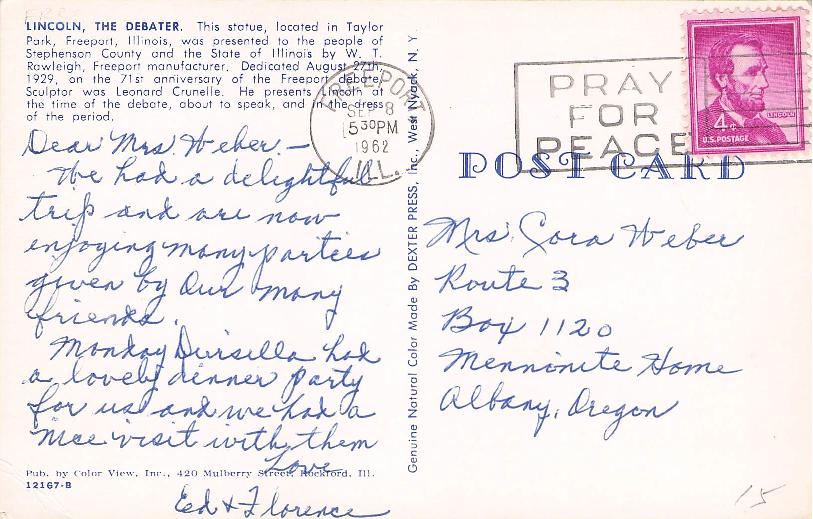 LINCOLN, THE DEBATER. This statue, located in Taylor
Park, Freeport, Illinois, was presented to the people of
Stephenson County and the State of Illinois by W. T.
Rawleigh, Freeport manufacturer. Dedicated August 27th,
1929, on the 71st anniversary of the Freeport debate.
Sculptor was Leonard Crunelle. He presents Lincoln at
the time of the debate, about to speak, and in the dress
of the period.
Dear Mrs. Weber. —
We had a delightful
trip and are now
enjoying many parties
given by our many
friends.
Monday had
a lovely dinner party
for us and we had a
nice visit with them
Love
Ed & Florence
Pub. by Color View, Inc., 420 Mulberry Street, Rockford, Ill.
12167-B
Genuine Natural Color Made By DEXTER PRESS, Inc., West Nyack, N. Y.
FREEPORT
SEP 8
5 30 PM
1962
ILL.
PRAY
FOR
PEACE
LINCOLN
4¢
U.S. POSTAGE
POST CARD
Mrs. Cora Weber
Route 3
Box 1120
Mennonite Home
Albany, Oregon
15